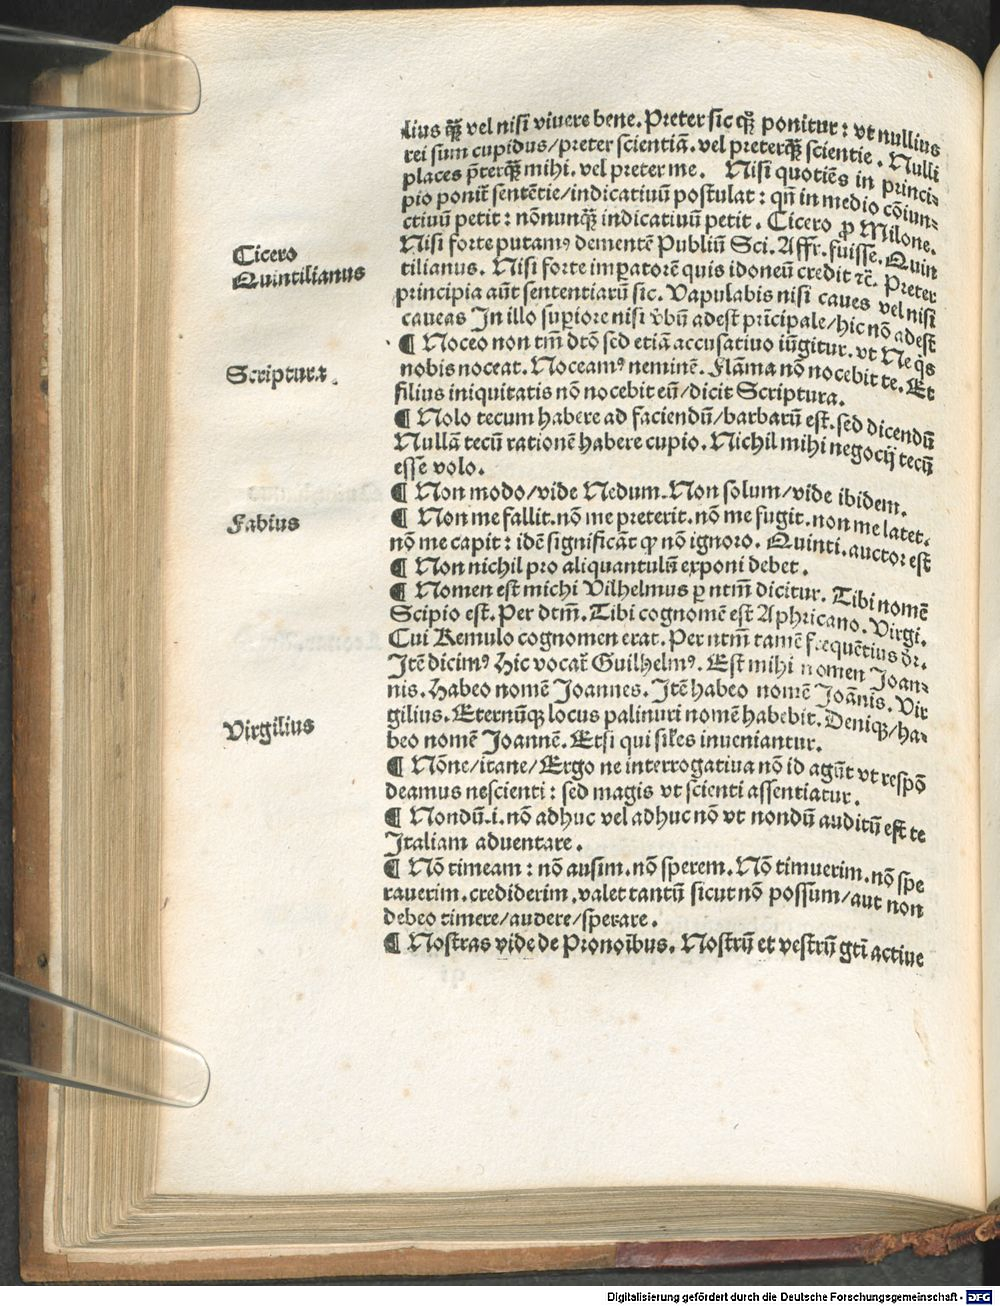 lius q̃ꝫ vel nisi viuere bene. Preter sic qꝫ ponitur: vt nullius
rei sum cupidus/preter scientiã. vel preterq̃ꝫ scientie. Nulli
places p̃terq̃ꝫ mihi. vel preter me. Nisi quotiẽs in princi-
pio ponit̃ sentẽtie/indicatiuũ postulat: qñ in medio cõiun-
ctiuũ petit: nõnunq̃ꝫ indicatiuũ petit. Cicero ꝓ Milone.
Cicero
Nisi forte putamꝰ dementẽ Publiũ Sci. Affr. fuisse. Quin
Quintilianus
tilianus. Nisi forte imꝑatorẽ quis idoneũ credit ⁊c̃. Preter
principia aũt sententiarũ sic. Vapulabis nisi caues vel nisi
caueas In illo suꝑiore nisi v̾bũ adest prĩcipale/hic nõ adest
¶ Noceo non tm̃ dtõ sed etiã accusatiuo iũgitur. vt Ne q̃s
Scriptura.
nobis noceat. Noceamꝰ neminẽ. Flãma nõ nocebit te. Et
filius iniquitatis nõ nocebit eũ/dicit Scriptura.
¶ Nolo tecum habere ad faciendũ/barbarũ est. sed dicendũ
Nullã tecũ rationẽ habere cupio. Nichil mihi negocij tecũ
esse volo.
¶ Non modo/vide Nedum. Non solum/vide ibidem.
Fabius
¶ Non me fallit. nõ me preterit. nõ me fugit. non me latet.
nõ me capit: idẽ significãt ꝙ nõ ignoro. Quinti. auctor est
¶ Non nichil pro aliquantulũ exponi debet.
¶ Nomen est michi Vilhelmus ꝑ ntm̃ dicitur. Tibi nomẽ
Scipio est. Per dtm̃. Tibi cognomẽ est Aphricano. Virgi.
Cui Remulo cognomen erat. Per ntm̃ tamẽ freq̃uẽtius dr̃.
Itẽ dicimꝰ Hic vocat̃ Guilhelmꝰ. Est mihi nomen Joan-
nis. Habeo nomẽ Joannes. Itẽ habeo nomẽ Joãnis. Vir
Virgilius
gilius. Eternũqꝫ locus palinuri nomẽ habebit. Deniqꝫ/ha-
beo nomẽ Joannẽ. Etsi qui siles inueniantur.
¶ Nõne/itane/Ergo ne interrogatiua nõ id agũt vt respõ
deamus nescienti: sed magis vt scienti assentiatur.
¶ Nondũ .i. nõ adhuc vel adhuc nõ vt nondũ auditũ est te
Italiam aduentare.
¶ Nõ timeam: nõ ausim. nõ sperem. Nõ timuerim. nõ spe
rauerim. crediderim. valet tantũ sicut nõ possum/aut non
debeo timere/audere/sperare.
¶ Nostras vide de Pronoĩbus. Nostrũ et vestrũ gtĩ actiue
Digitalisierung gefördert durch die Deutsche Forschungsgemeinschaft - DFG